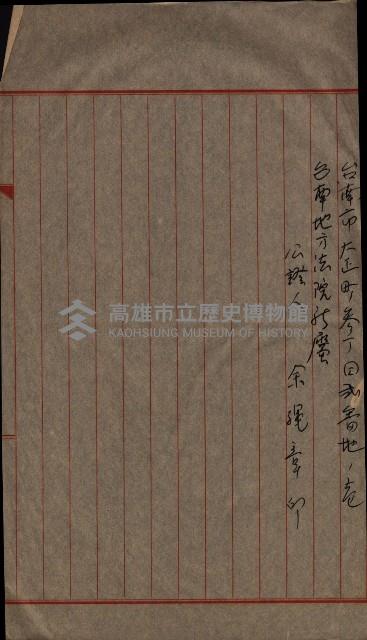 台南市大正町參丁目貳番地ノ壱
台南地方法院所屬
公證人 余繩章 印
高雄市立歷史博物館
KAOHSIUNG MUSEUM OF HISTORY